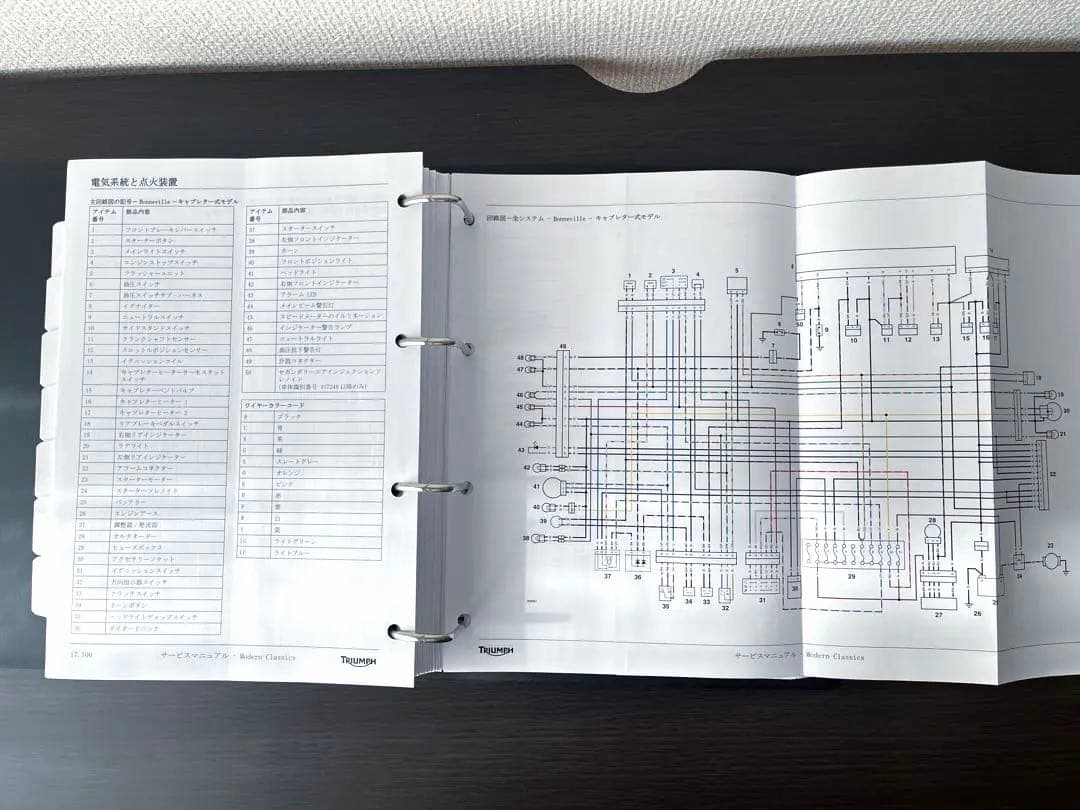 電気系統と点火装置
主回路図の記号 - Bonneville - キャブレター式モデル
アイテム番号 部品内容
1 フロントブレーキレバースイッチ
2 スターターボタン
3 メインライトスイッチ
4 エンジンストップスイッチ
5 フラッシャーユニット
6 油圧スイッチ
7 油圧スイッチサブ-ハーネス
8 イグナイター
9 ニュートラルスイッチ
10 サイドスタンドスイッチ
11 クランクシャフトセンサー
12 スロットルポジションセンサー
13 イグニッションコイル
14 キャブレターヒーターサーモスタットスイッチ
15 キャブレターベントバルブ
16 キャブレターヒーター 1
17 キャブレターヒーター 2
18 リアブレーキペダルスイッチ
19 右側リアインジケーター
20 リアライト
21 左側リアインジケーター
22 アラームコネクター
23 スターターモーター
24 スターターソレノイド
25 バッテリー
26 エンジンアース
27 調整器 / 整流器
28 オルタネーター
29 ヒューズボックス
30 アクセサリーソケット
31 イグニッションスイッチ
32 方向指示器スイッチ
33 クラッチスイッチ
34 ホーンボタン
35 ヘッドライトディップスイッチ
36 ダイオードパック
アイテム番号 部品内容
37 スタータースイッチ
38 左側フロントインジケーター
39 ホーン
40 フロントポジションライト
41 ヘッドライト
42 右側フロントインジケーター
43 アラーム LED
44 メインビーム警告灯
45 スピードメーターのイルミネーション
46 インジケーター警告ランプ
47 ニュートラルライト
48 油圧低下警告灯
49 計器コネクター
50 セカンダリーエアインジェクションソレノイド
(車体識別番号 517248 以降のみ)
ワイヤーカラーコード
B ブラック
U 青
N 茶
G 緑
S スレートグレー
O オレンジ
K ピンク
R 赤
P 紫
W 白
Y 黄
LG ライトグリーン
LU ライトブルー
17.100
サービスマニュアル - Modern Classics
TRIUMPH
回路図 - 全システム - Bonneville - キャブレター式モデル
1 2 3 4 5
50 6 7 9 10 11 12 13 15 16
49 48 47 46 45 44 43 42 41 40 39 38
18 19 20 21 22 23 24
37 36 35 34 33 32 31 30 29 28 27 26
TRIUMPH
サービスマニュアル - Modern Classics